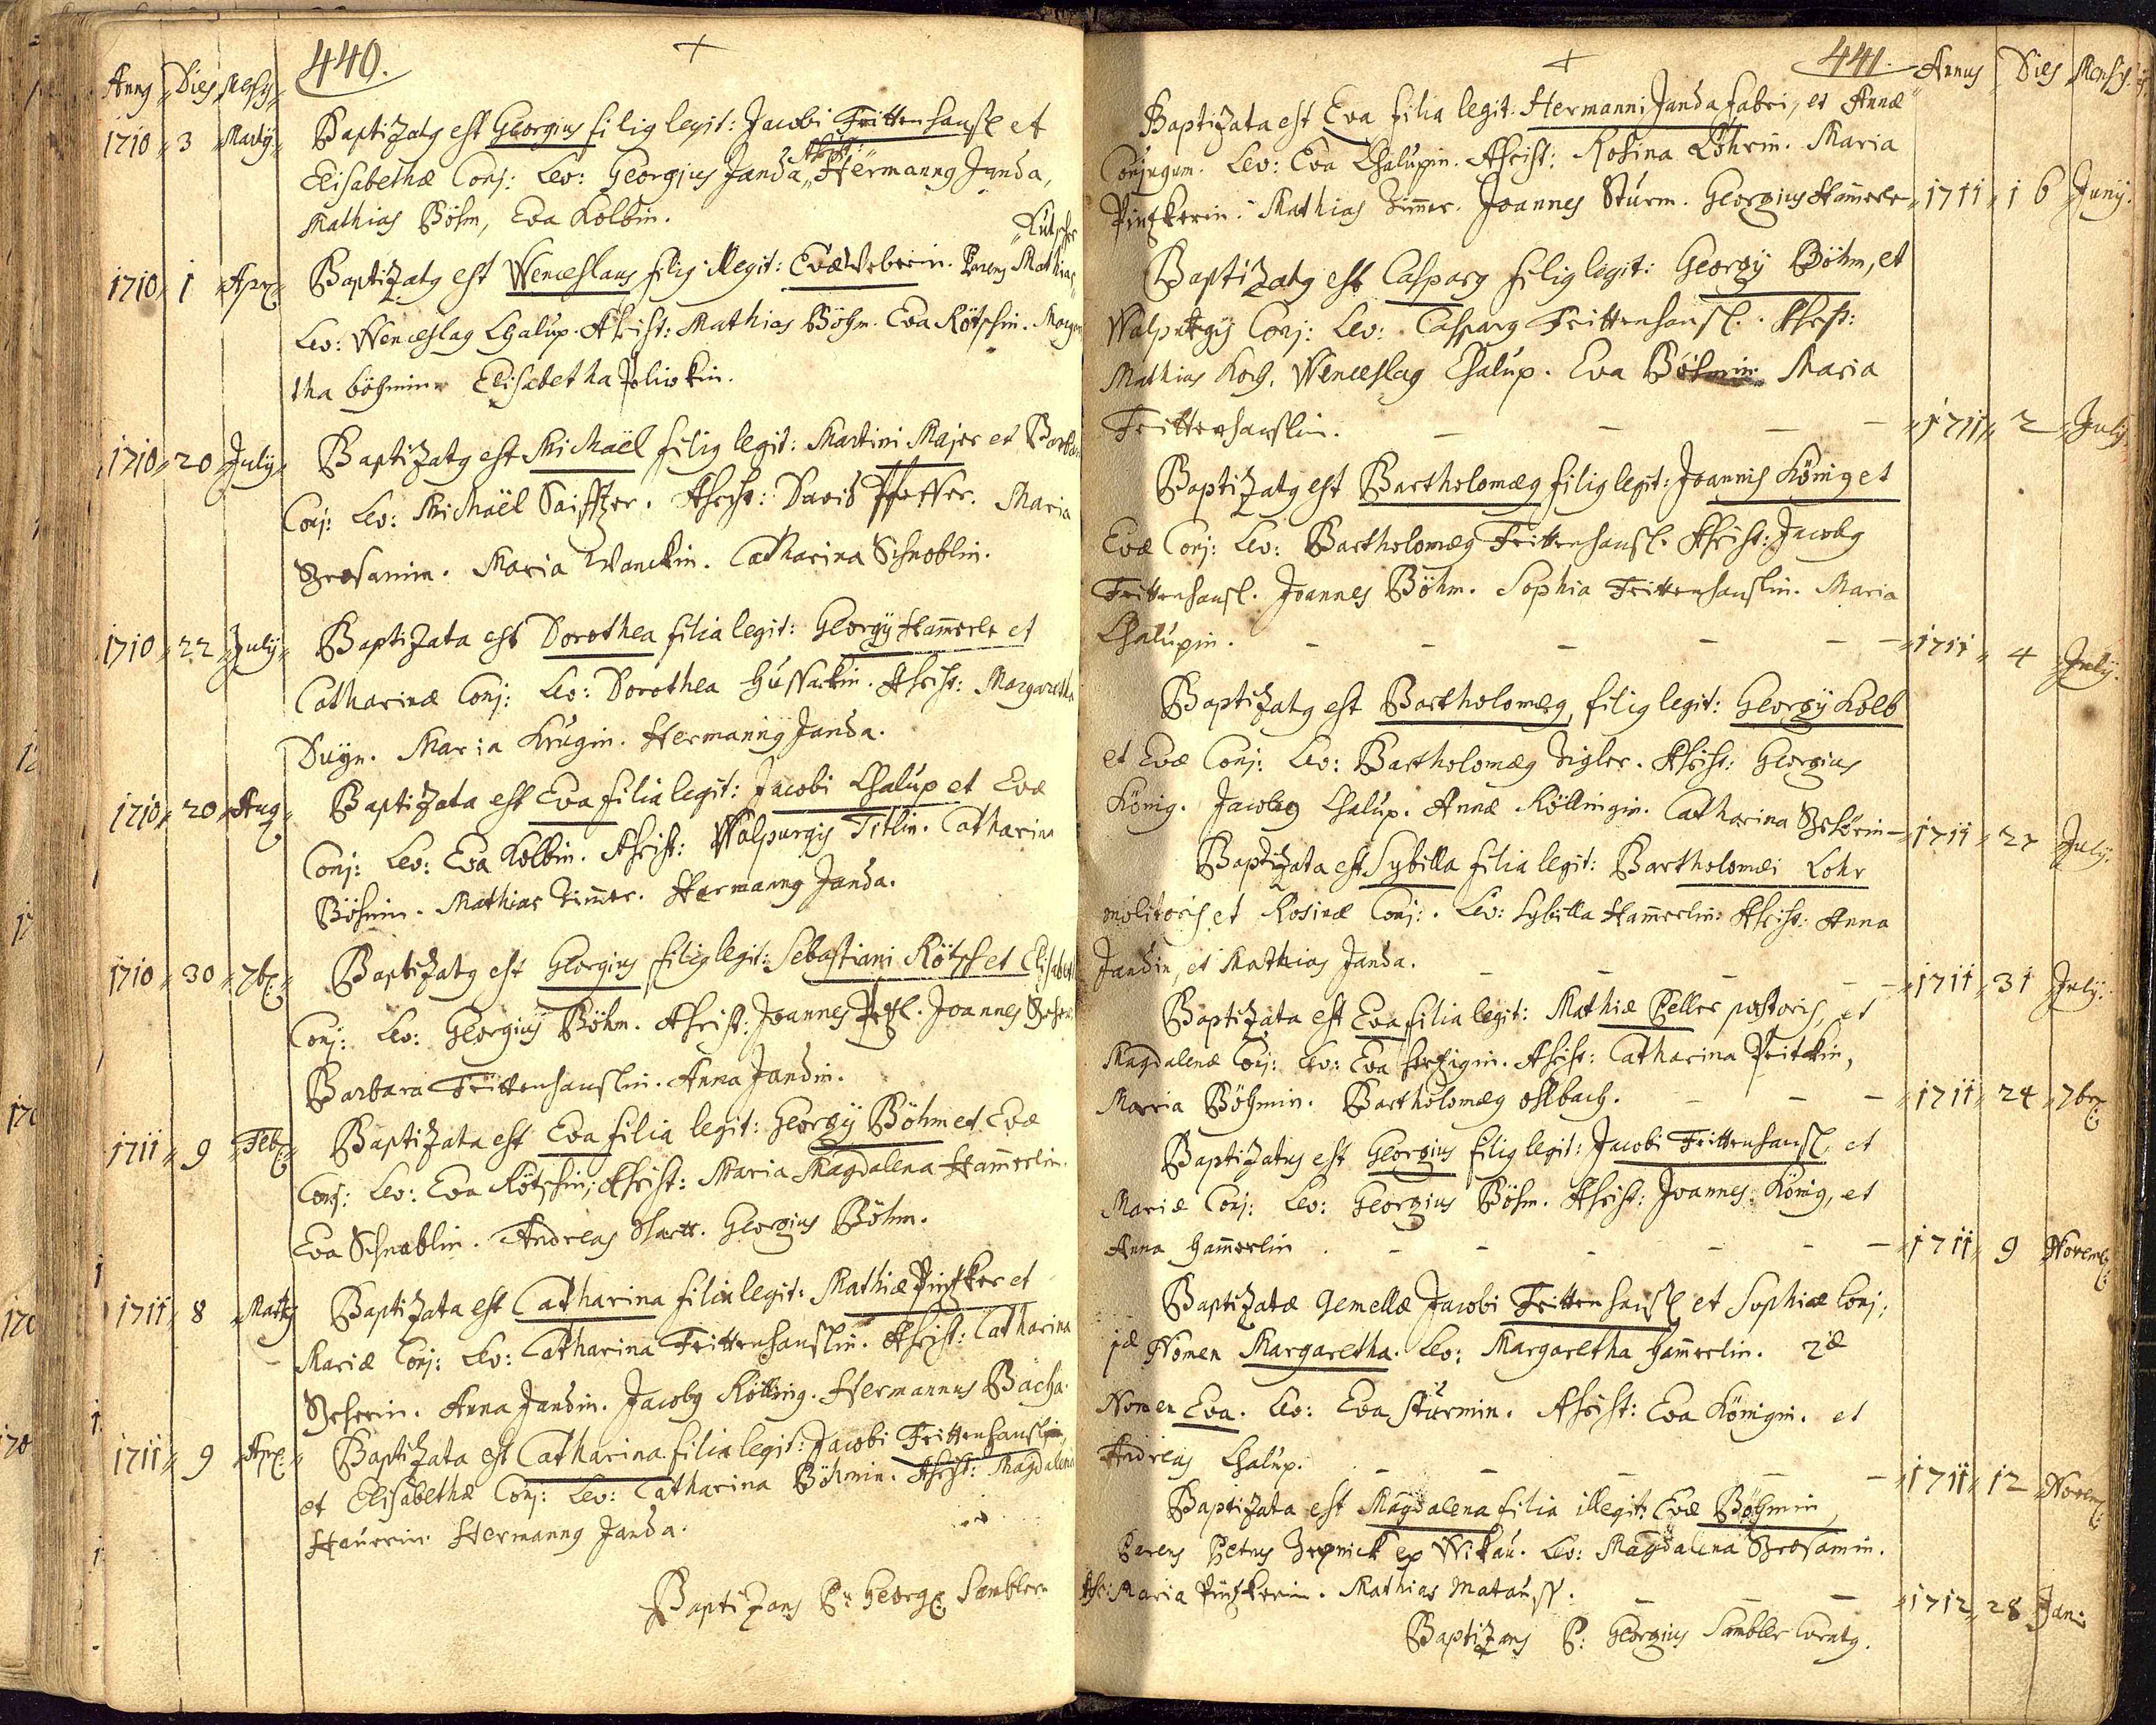 Anng Dies Mesis
440.
1710 3 Martij Baptizatg est Georgius filig legit: Jacobi Trittenhansl et
Assist:
Elisabethæ Conj: Lev: Georgius Janda, Hermanng Janda,
Mathias Böhm, Eva Kolbin.
Kutscher
1710 1 Apr: Baptizatg est Wenceslaus filig illegit: Evæ Weberin. Parens Mathias
Lev: Wenceslag Chalup. Assist: Mathias Böhm. Eva Rötschin. Marga
tha böhmin Elisabetha Poliwkin.
1710 20 July Baptizatg est Michaël filig legit: Martini Majer et Barba
Conj: Lev: Michaël Assist: David Pfeffer. Maria
Maria Wanckin. Catharina Schnoblin.
1710 22 July Baptizata est Dorothea filia legit: Georgÿ Hamerle et
Catharinæ Conj: Lev: Dorothea Hussackin. Assist: Margaretha
Maria Krugin. Hermanng Janda.
1710 20 Aug Baptizata est Eva filia legit: Jacobi Chalup et Evæ
Conj: Lev: Eva Kolbin. Assist: Walpurgis Titlin. Catharina
Böhmin. Mathias Zimer. Hermanng Janda.
1710 30 7br: Baptizatg est Georgius filig legit: Sebastiani Rötsch et Elisabeth
Conj: Lev: Georgius Böhm. Assist: Joannes Joannes
Barbara Trittenhanslin. Anna Jandin.
1711 9 Feb: Baptizata est Eva filia legit: Georgÿ Böhm et Evæ
Conj: Lev: Eva Rötschin; Assist: Maria Magdalena Hamerlin.
Eva Schnablin. Andreas Georgius Böhm.
1711 8 Martij Baptizata est Catharina filia legit: Mathiæ Pintzker et
Mariæ Conj: Lev: Catharina Trittenhanslin. Assist: Catharina
Anna Jandin. Jacobg Kölling. Hermannus Bächa.
1711 9 Apr: Baptizata est Catharina filia legit: Jacobi Trittenhanslin
et Elisabethæ Conj: Lev: Catharina Böhmin. Assist: Magdalena
Hauerin Hermanng Janda.
Baptizans P: Georg: Sambler
441. Annus Dies Mensis
Baptizata est Eva filia legit: Hermanni Janda fabri, et Annæ
Conjugum. Lev: Eva Chalupin. Assist: Rosina Löhrin. Maria
Pintzkerin. Mathias Zimer. Joannes Sturm. Georgius Hamerle 1711 16 Junij.
Baptizatg est Casparg filig legit: Georgÿ Böhm, et
Walpurgis Conj: Lev: Casparg Trittenhansl. Assist:
Mathias Koch, Wenceslag Chalup. Eva Böhmin Maria
Trittenhanslin. 1711 2 July
Baptizatg est Bartholomæg filig legit: Joannis König et
Evæ Conj: Lev: Bartholomæg Trittenhansl. Assist: Jacobg
Trittenhansl. Joannes Böhm. Sophia Trittenhanslin. Maria
Chalupin. 1711 4 July.
Baptizatg est Bartholomæg, filig legit: Georgÿ Kolb
et Evæ Conj: Lev: Bartholomæg Zigler. Assist: Georgius
König. Jacobg Chalup. Anna Köllingin. Catharina 1711 27 July.
Baptizata est Sybilla filia legit: Bartholomæi Lohr
molitoris et Rosinæ Conj:. Lev: Sybilla Hamerlin: Assist: Anna
Jandin, et Mathias Janda. 1711 31 July.
Baptizata est Eva filia legit: Mathiæ Peller pastoris, et
Magdalenæ Conj: Lev: Eva Hertzigin. Assist: Catharina Pritckin,
Maria Böhmin. Bartholomæg Ohlbach. 1711 24 7br:
Baptizatus est Georgius filig legit: Jacobi Trittenhansl, et
Mariæ Conj: Lev: Georgius Böhm. Assist: Joannes König, et
Anna Hamerlin. 1711 9 Novemb:
Baptizatæ Gemellæ Jacobi Trittenhansl et Sophiæ Conj:
1æ Nomen Margaretha. Lev: Margaretha Hamerlin. 2æ
Nomen Eva. Lev: Eva Sturmin. Assist: Eva Königin. et
Andreas Chalup. 1711 12 Novem:
Baptizata est Magdalena filia illegit: Evæ Böhmin,
Parens Petrus ex Wikau. Lev: Magdalena
Ass: Maria Pintzkerin. Mathias Matauss. 1712 28 Jan:
Baptizans P: Georgius Sambler Curatg.